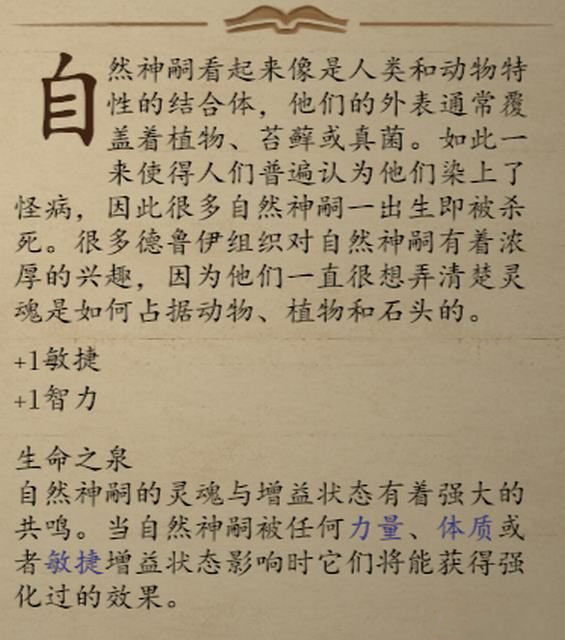 自然神嗣看起来像是人类和动物特
性的结合体，他们的外表通常覆
盖着植物、苔藓或真菌。如此一
来使得人们普遍认为他们染上了
怪病，因此很多自然神嗣一出生即被杀
死。很多德鲁伊组织对自然神嗣有着浓
厚的兴趣，因为他们一直很想弄清楚灵
魂是如何占据动物、植物和石头的。
+1敏捷
+1智力
生命之泉
自然神嗣的灵魂与增益状态有着强大的
共鸣。当自然神嗣被任何力量、体质或
者敏捷增益状态影响时它们将能获得强
化过的效果。